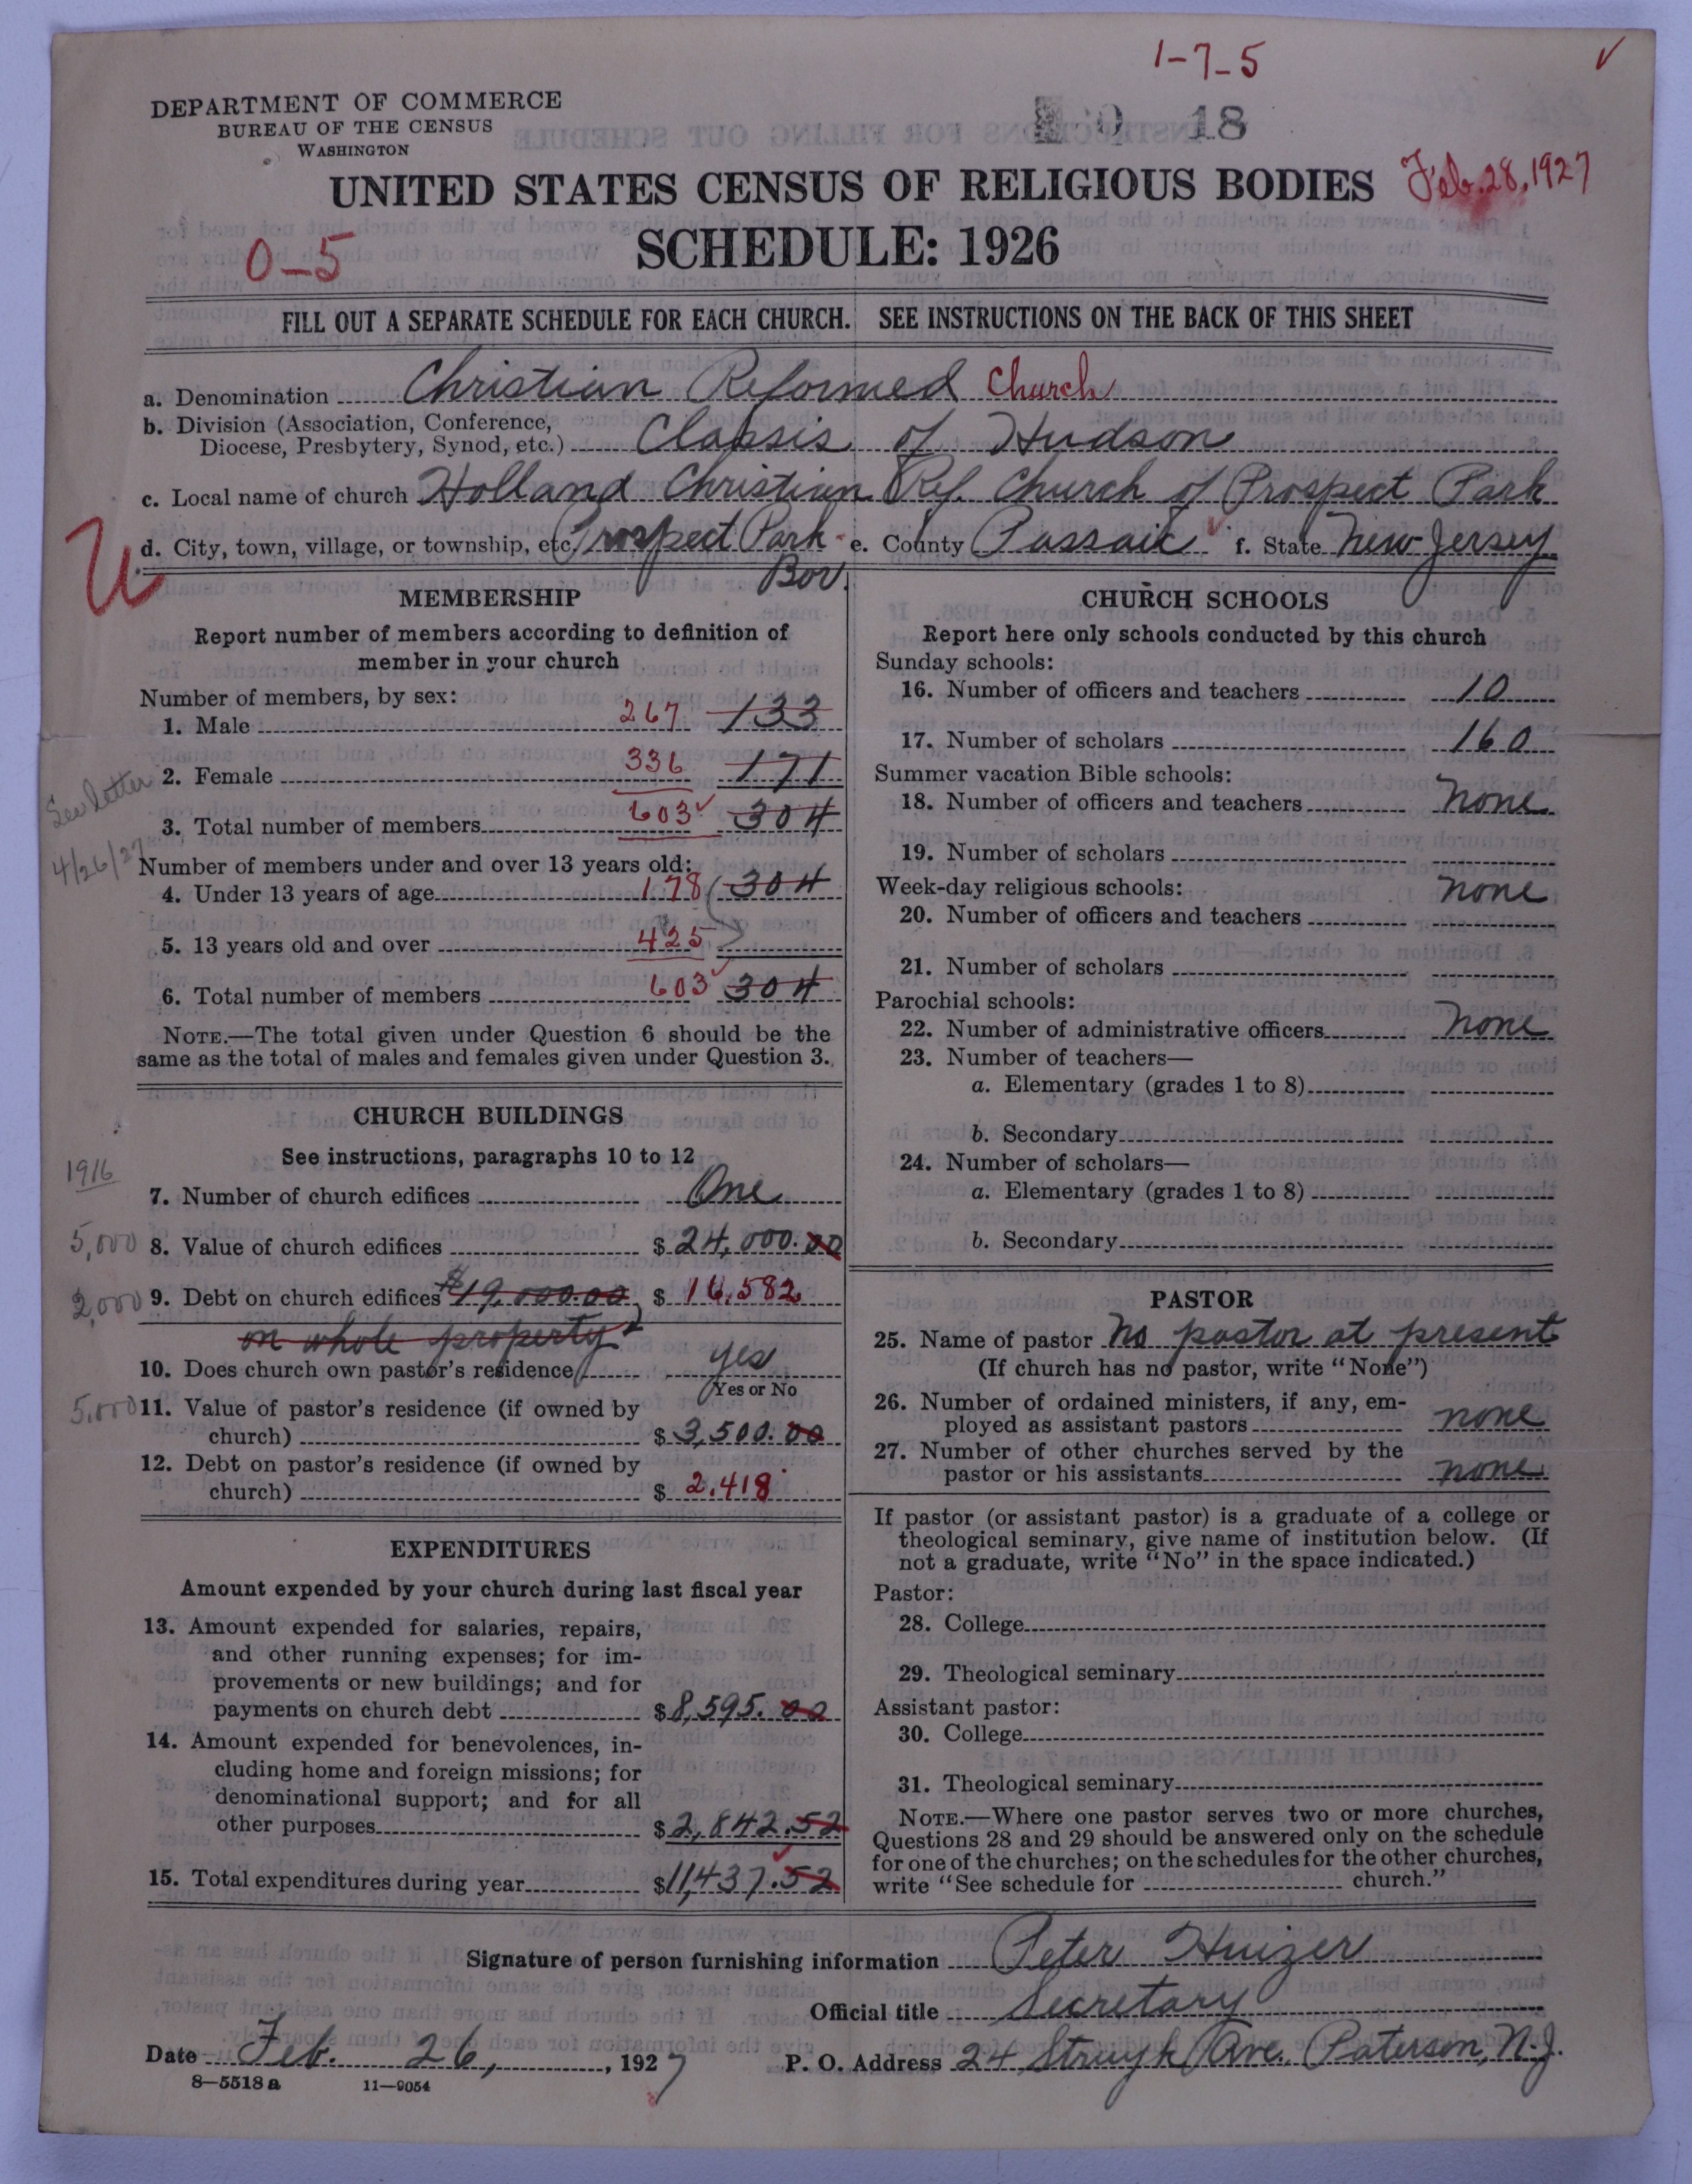 1-7-5
✓
DEPARTMENT OF COMMERCE
BUREAU OF THE CENSUS
WASHINGTON
18
UNITED STATES CENSUS OF RELIGIOUS BODIES
Feb. 28, 1927
SCHEDULE: 1926
0-5
FILL OUT A SEPARATE SCHEDULE FOR EACH CHURCH. SEE INSTRUCTIONS ON THE BACK OF THIS SHEET
a. Denomination Christian Reformed Church
b. Division (Association, Conference,
Diocese, Presbytery, Synod, etc.) Classis of Hudson
c. Local name of church Holland Christian Ref. Church of Prospect Park
d. City, town, village, or township, etc. Prospect Park e. County Passaic f. State New Jersey
Bor.
MEMBERSHIP
Report number of members according to definition of
member in your church
Number of members, by sex:
1. Male 267 133
2. Female 336 171
See letter
3. Total number of members 603 ✓ 304
4/26/27
Number of members under and over 13 years old:
4. Under 13 years of age 178 304
5. 13 years old and over 425
6. Total number of members 603 ✓ 304
NOTE.—The total given under Question 6 should be the
same as the total of males and females given under Question 3.
CHURCH BUILDINGS
See instructions, paragraphs 10 to 12
1916
7. Number of church edifices One
5,000 8. Value of church edifices $ 24,000.00
2,000 9. Debt on church edifices $19,000.00 $ 16,582
on whole property
10. Does church own pastor's residence yes
Yes or No
5,000 11. Value of pastor's residence (if owned by
church) $ 3,500.00
12. Debt on pastor's residence (if owned by
church) $ 2,418
EXPENDITURES
Amount expended by your church during last fiscal year
13. Amount expended for salaries, repairs,
and other running expenses; for im-
provements or new buildings; and for
payments on church debt $ 8,595.00
14. Amount expended for benevolences, in-
cluding home and foreign missions; for
denominational support; and for all
other purposes $ 2,842.52
15. Total expenditures during year $ 11,437.52
CHURCH SCHOOLS
Report here only schools conducted by this church
Sunday schools:
16. Number of officers and teachers 10
17. Number of scholars 160
Summer vacation Bible schools:
18. Number of officers and teachers none
19. Number of scholars
Week-day religious schools: none
20. Number of officers and teachers
21. Number of scholars
Parochial schools:
22. Number of administrative officers none
23. Number of teachers—
a. Elementary (grades 1 to 8)
b. Secondary
24. Number of scholars—
a. Elementary (grades 1 to 8)
b. Secondary
PASTOR
25. Name of pastor no pastor at present
(If church has no pastor, write "None")
26. Number of ordained ministers, if any, em-
ployed as assistant pastors none
27. Number of other churches served by the
pastor or his assistants none
If pastor (or assistant pastor) is a graduate of a college or
theological seminary, give name of institution below. (If
not a graduate, write "No" in the space indicated.)
Pastor:
28. College
29. Theological seminary
Assistant pastor:
30. College
31. Theological seminary
NOTE.—Where one pastor serves two or more churches,
Questions 28 and 29 should be answered only on the schedule
for one of the churches; on the schedules for the other churches,
write "See schedule for church."
Signature of person furnishing information Peter Huizer
Official title Secretary
Date Feb. 26, 1927 P. O. Address 24 Struyk Ave. Paterson, N.J.
8—5518 a 11—9054